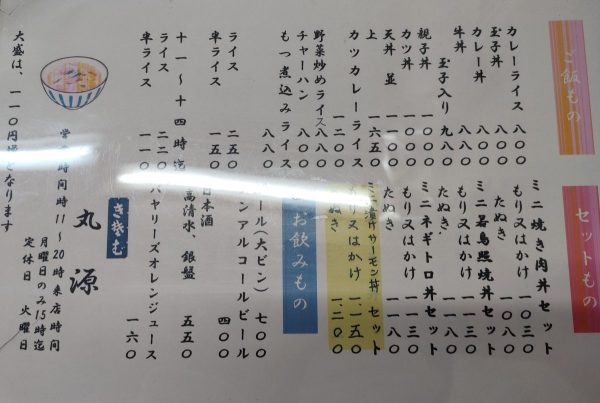 ご飯もの
カレーライス 八〇〇
玉子丼 八〇〇
カレー丼 八〇〇
牛丼 八八〇
玉子入り 九八〇
親子丼 一〇〇〇
カツ丼 一〇〇〇
天丼 並
上 一、六五〇
カツカレーライス 一、二〇〇
野菜炒めライス 八八〇
チャーハン 八八〇
もつ煮込みライス 八八〇
ライス 二五〇
半ライス 一五〇
十一～十四時迄
ライス 二二〇
半ライス 一一〇
大盛は、一一〇円増となります
セットもの
ミニ焼き肉丼セット
もり又はかけ 一、〇三〇
たぬき 一、〇八〇
ミニ若鳥照焼丼セット
もり又はかけ 一、一三〇
たぬき 一、一八〇
ミニネギトロ丼セット
もり又はかけ 一、一三〇
たぬき 一、一八〇
ミニ漬けサーモン丼セット
もり又はかけ 一、一五〇
たぬき 一、二〇〇
お飲みもの
ビール(大ビン) 七〇〇
ノンアルコールビール
日本酒
高清水、銀盤 五五〇
バヤリーズオレンジュース 一六〇
きそば
丸源
営業時間11～20時来店時間
月曜日のみ15時迄
定休日 火曜日